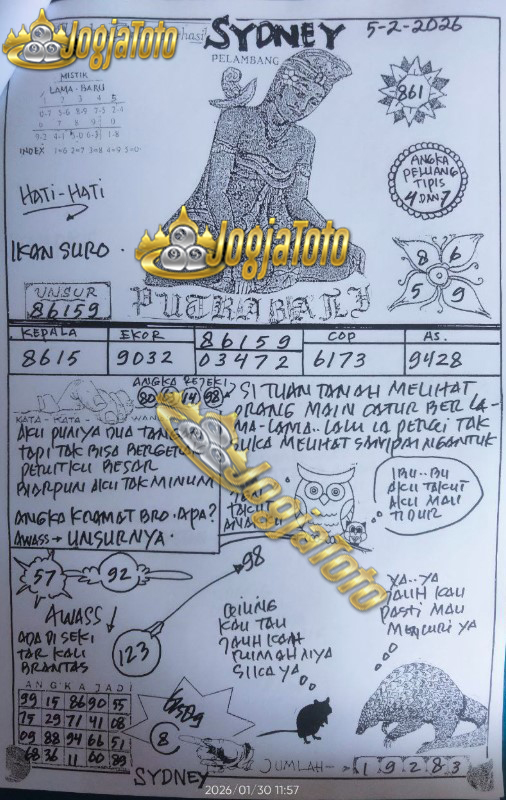 JogjaToto
SYDNEY
5-2-2026
PELAMBANG
MISTIK
LAMA - BARU
1 2 3 4 5
0-7 5-6 8-9 2-3 2-4
6 7 8 9 0
INDEX 1=6 2=7 3=8 4=9 5=0
861
HATI-HATI
ANGKA
PELUANG
TIPIS
4 DAN 7
IKAN SURO.
JogjaToto
8 6
5 9
UNSUR
86159
PUTRA BALI
KEPALA
8615
EKOR
9032
86159
03472
COP
6173
AS.
9428
ANGKA REJEKI
14 98
KATA - KATA -
AKU PUNYA DUA
TAPI TAK BISA BERGERAK
PERUTKU BESAR
BIARPUN AKU TAK MINUM
ANGKA KRAMAT BRO. APA?
AWASS → UNSURNYA.
SI TUAN TANAH MELIHAT
ORANG MAIN CATUR BER LA-
MA-LAMA.. LALU IA PERGI TAK
SUKA MELIHAT SAMPAI NGANTUK
JogjaToto
TAKUT
IBU.. BU
AKU TAKUT
AKU MAU
TIDUR
57
92
98
AWASS ↓
ADA DI SEKI
TAR KALI
BRANTAS
123
KAU TAU
JAUH KAH
RUMAH NYA
SI KA YA
YA.. YA
JAUH KAU
PASTI MAU
MENCURI YA
ANGKA JADI
99 15 86 90 55
75 29 71 41 08
09 88 94 66 51
68 36 11 00 89
8
SYDNEY
JUMLAH-
1 9 2 8 3
2026/01/30 11:57